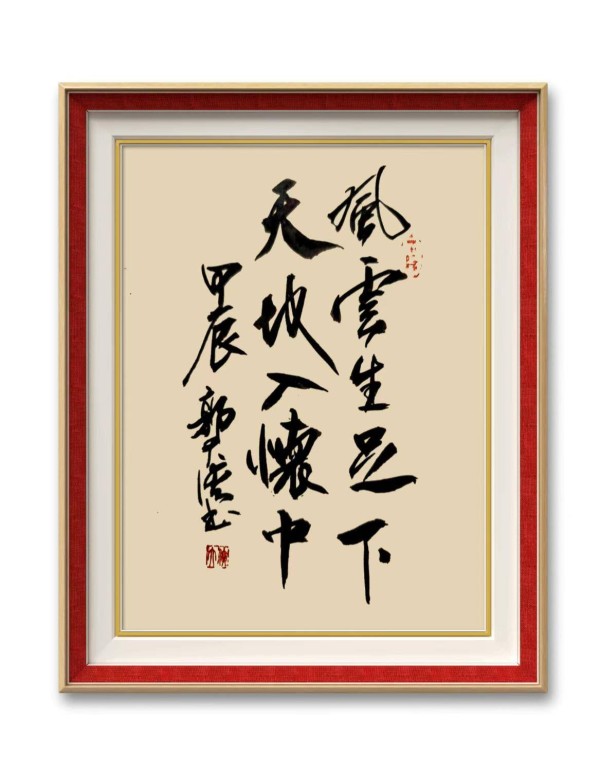 風雲生足下
天地入懷中
甲辰 郭